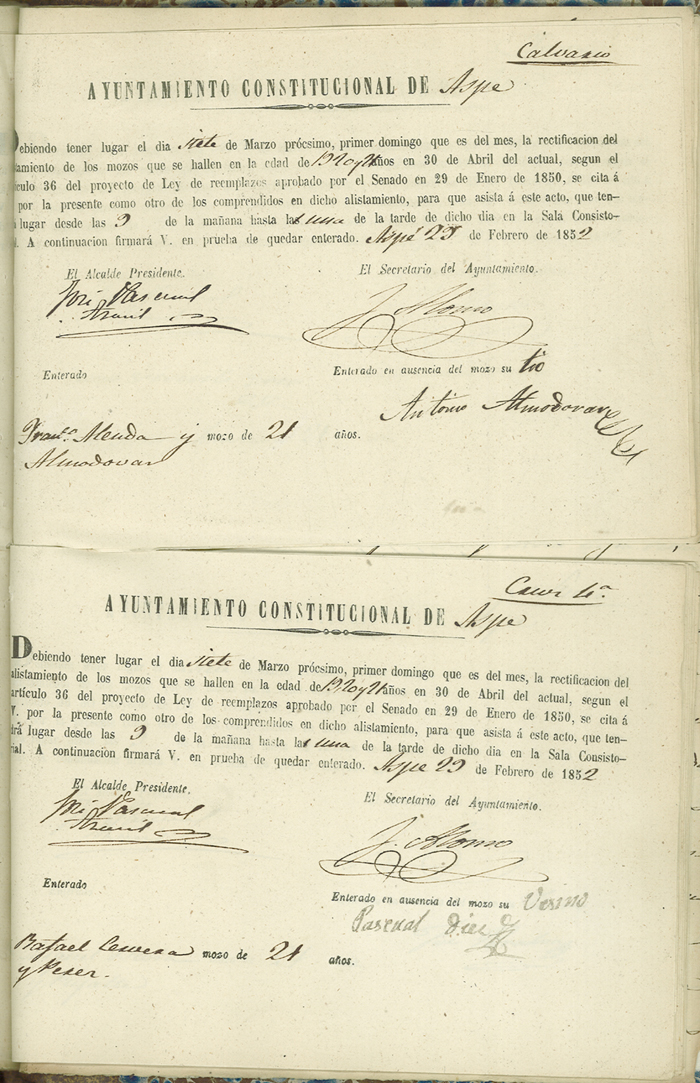 Calvario
AYUNTAMIENTO CONSTITUCIONAL DE Aspe
Debiendo tener lugar el dia siete de Marzo prócsimo, primer domingo que es del mes, la rectificacion del
tamiento de los mozos que se hallen en la edad de 19 20 y 21 años en 30 de Abril del actual, segun el
culo 36 del proyecto de Ley de reemplazos aprobado por el Senado en 29 de Enero de 1850, se cita á
por la presente como otro de los comprendidos en dicho alistamiento, para que asista á este acto, que ten-
lugar desde las 9 de la mañana hasta la una de la tarde de dicho dia en la Sala Consisto-
l. A continuacion firmará V. en prueba de quedar enterado. Aspe 29 de Febrero de 1852
El Alcalde Presidente.
El Secretario del Ayuntamiento.
José Pascual
J. Alonso
Enterado
Enterado en ausencia del mozo su tio
Antonio Almodovar
Franco. Alenda y mozo de 21 años.
Almodovar
AYUNTAMIENTO CONSTITUCIONAL DE Aspe
Debiendo tener lugar el dia siete de Marzo prócsimo, primer domingo que es del mes, la rectificacion del
alistamiento de los mozos que se hallen en la edad de 19 20 y 21 años en 30 de Abril del actual, segun el
artículo 36 del proyecto de Ley de reemplazos aprobado por el Senado en 29 de Enero de 1850, se cita á
V. por la presente como otro de los comprendidos en dicho alistamiento, para que asista á este acto, que ten-
drá lugar desde las 9 de la mañana hasta la una de la tarde de dicho dia en la Sala Consisto-
rial. A continuacion firmará V. en prueba de quedar enterado. Aspe 29 de Febrero de 1852
El Alcalde Presidente.
El Secretario del Ayuntamiento.
José Pascual
J. Alonso
Enterado
Enterado en ausencia del mozo su
Pascual Diez
Rafael Cervera mozo de 21 años.